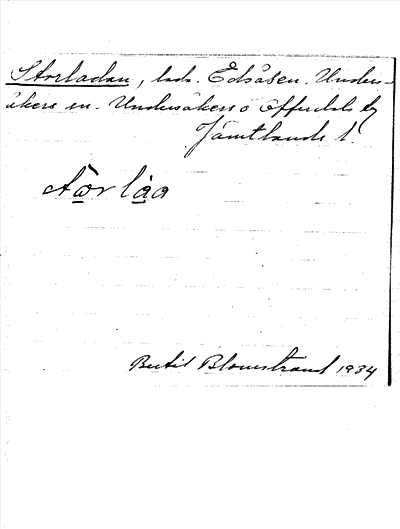 Storladan, lada. Edsåsen. Unders-
åkers sn. Undersåkers o Offerdals tg
Jämtlands l.
stor lâa
Bertil Blomstrand 1934